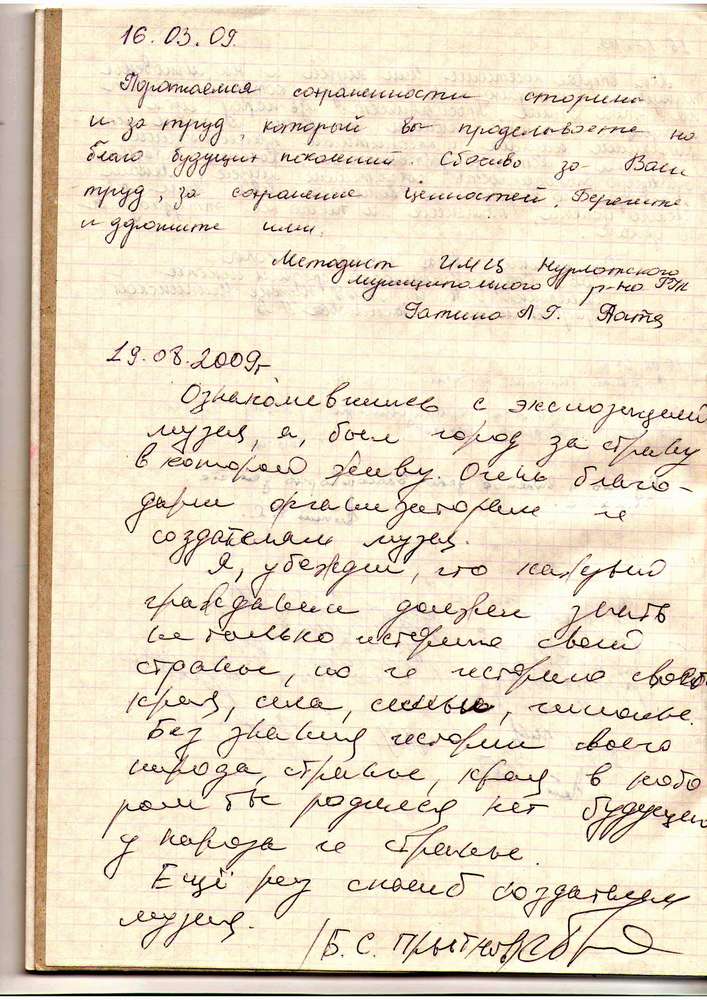 16.03.09.
Поражаемся сохранённости старины
и за труд, который вы проделываете на
благо будущих поколений. Спасибо за Ваш
труд, за сохранение ценностей. Берегите
и дрожите ими.
Методист ИМЦ Нурлатского
муниципального р-на РТ
Гатина Л.Г.
19.08.2009г
Ознакомевшись с экспозицией
музея, я, был горд за страну
в которой живу. Очень благо-
дарен организаторам и
создателям музея.
Я, убежден, что каждый
гражданин должен знать
не только историю своей
страны, но и историю своего
края, села, семьи,
Без знания истории своего
народа, страны, края в кото
ром ты родился нет будущего
у народа и страны.
Ещё раз спасиб создателям
музея.
/Б.С.